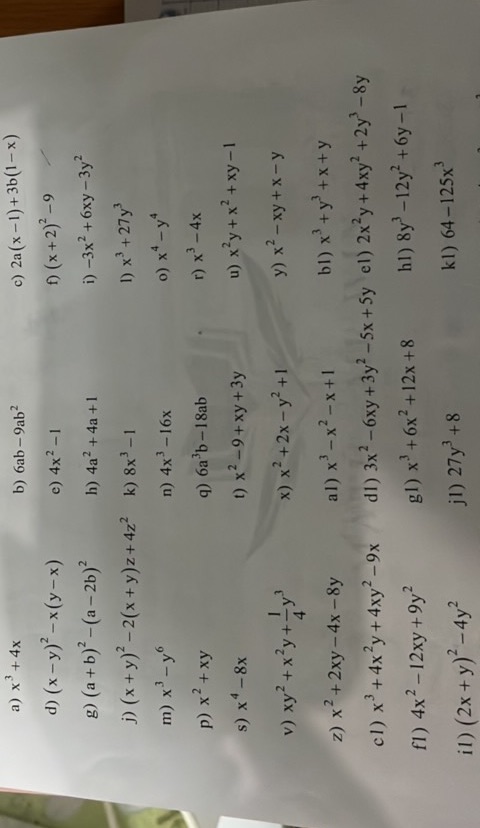 a) x³ + 4x b) 6ab − 9ab² c) 2a(x − 1) + 3b(1 − x)
d) (x − y)² − x(y − x) e) 4x² − 1 f) (x + 2)² − 9
g) (a + b)² − (a − 2b)² h) 4a² + 4a + 1 i) −3x² + 6xy − 3y²
j) (x + y)² − 2(x + y)z + 4z² k) 8x³ − 1 l) x³ + 27y³
m) x³ − y⁶ n) 4x³ − 16x o) x⁴ − y⁴
p) x² + xy q) 6a³b − 18ab r) x³ − 4x
s) x⁴ − 8x t) x² − 9 + xy + 3y u) x²y + x² + xy − 1
v) xy² + x²y + 1/4 y³ x) x² + 2x − y² + 1 y) x² − xy + x − y
z) x² + 2xy − 4x − 8y a1) x³ − x² − x + 1 b1) x³ + y³ + x + y
c1) x³ + 4x²y + 4xy² − 9x d1) 3x² − 6xy + 3y² − 5x + 5y e1) 2x²y + 4xy² + 2y³ − 8y
f1) 4x² − 12xy + 9y² g1) x³ + 6x² + 12x + 8 h1) 8y³ − 12y² + 6y − 1
i1) (2x + y)² − 4y² j1) 27y³ + 8 k1) 64 − 125x³